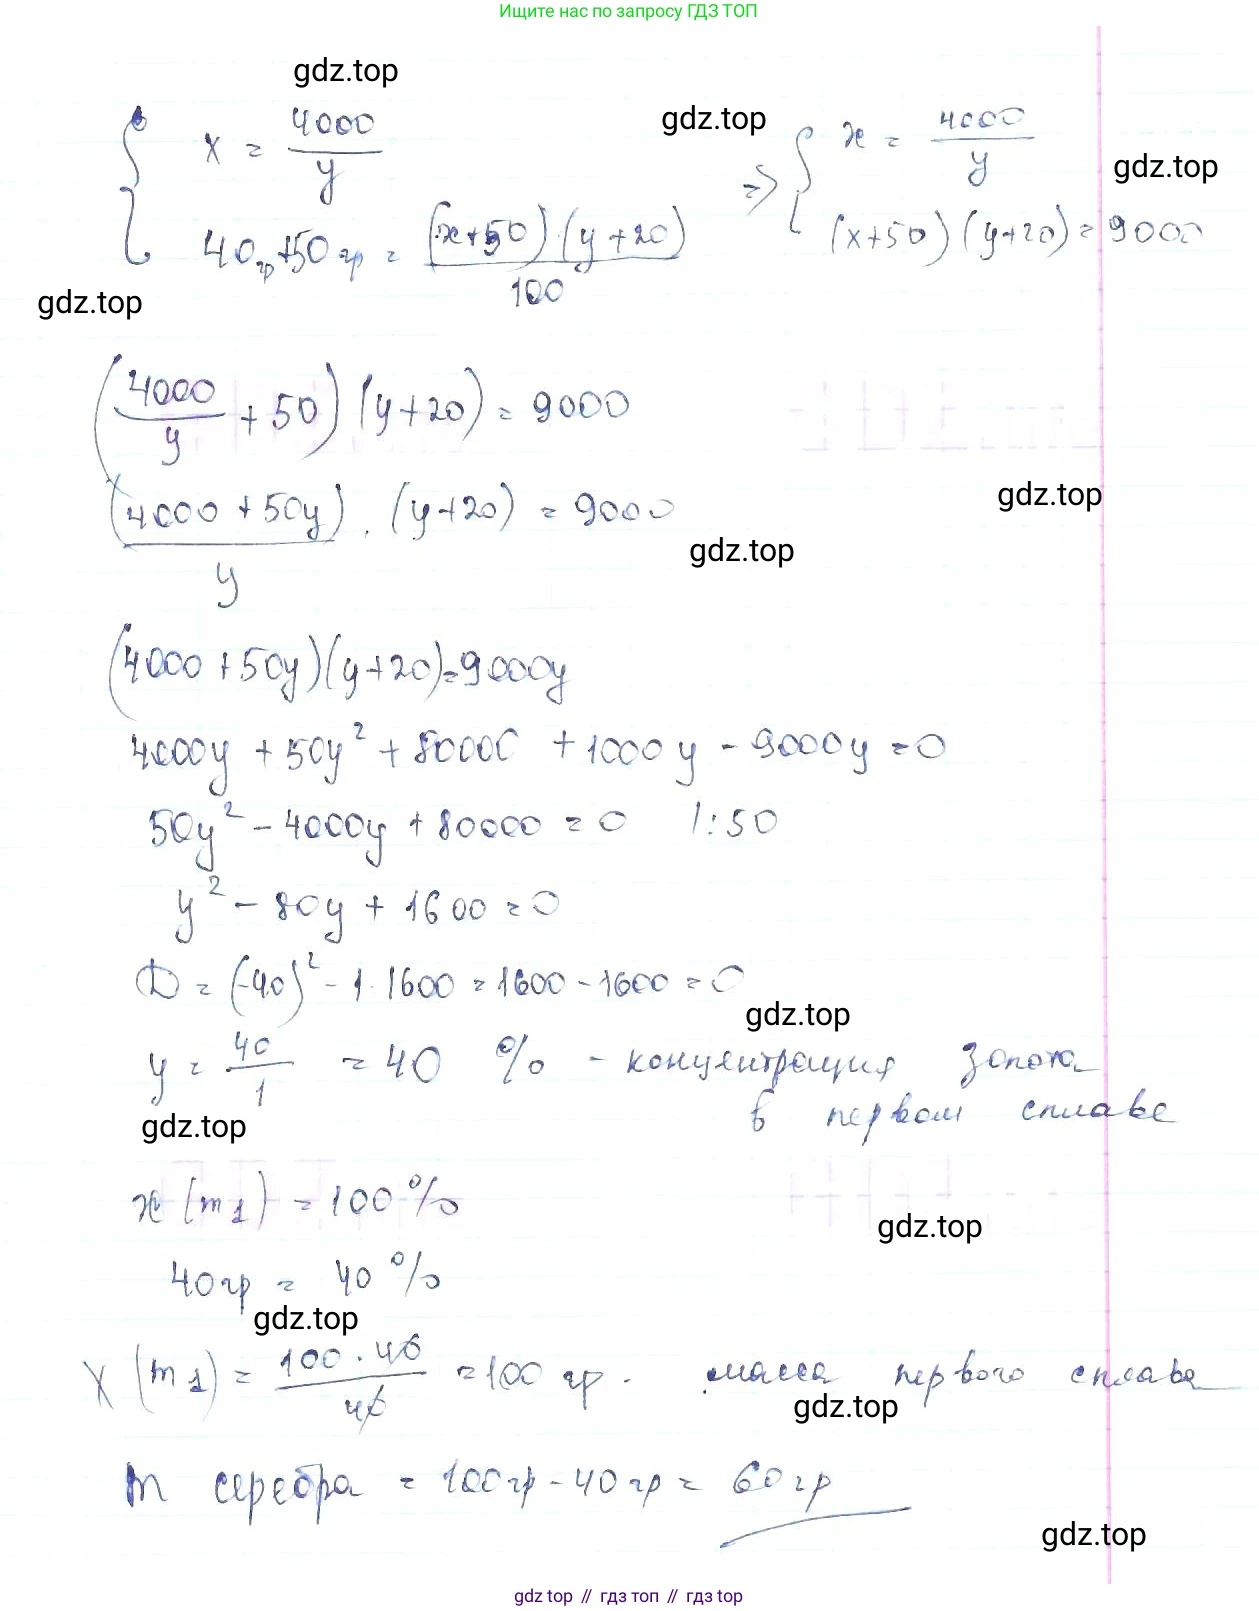 Ищите нас по запросу ГДЗ ТОП
gdz.top
x = 4000/y
gdz.top
=> x = 4000/y
gdz.top
40гр+50гр = (x+50)(y+20)/100
(x+50)(y+20) = 9000
gdz.top
(4000/y + 50)(y+20) = 9000
(4000+50y)/y · (y+20) = 9000
gdz.top
gdz.top
(4000+50y)(y+20)=9000y
4000y + 50y² + 80000 + 1000y - 9000y = 0
50y² - 4000y + 80000 = 0 |:50
y² - 80y + 1600 = 0
D = (-40)² - 1·1600 = 1600 - 1600 = 0
gdz.top
y = 40/1 = 40 % - концентрация золота
в первом сплаве
gdz.top
x (m1) = 100%
gdz.top
40гр = 40%
gdz.top
x (m1) = 100·40/40 = 100 гр. масса первого сплава
gdz.top
m серебра = 100гр - 40гр = 60гр
gdz.top
gdz top // гдз топ // gdz top